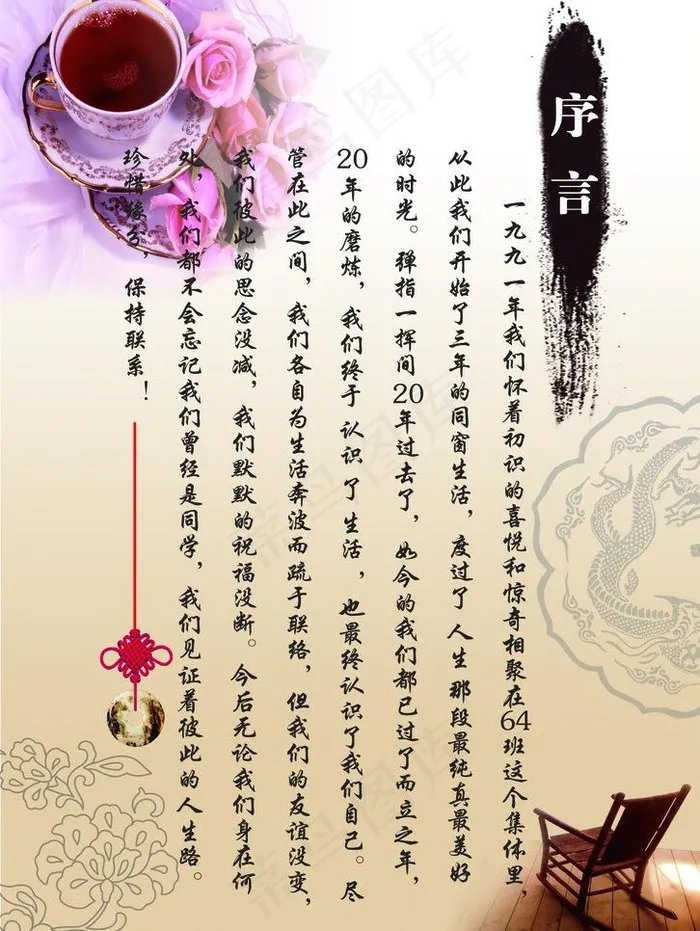 序言
一九九一年我们怀着初识的喜悦和惊奇相聚在64班这个集体里,
从此我们开始了三年的同窗生活,度过了人生那段最纯真最美好
的时光。弹指一挥间20年过去了,如今的我们都已过了而立之年,
20年的磨炼,我们终于认识了生活,也最终认识了我们自己。尽
管在此之间,我们各自为生活奔波而疏于联络,但我们的友谊没变,
我们彼此的思念没减,我们默默的祝福没断。今后无论我们身在何
处,我们都不会忘记我们曾经是同学,我们见证着彼此的人生路。
珍惜缘分,保持联系!